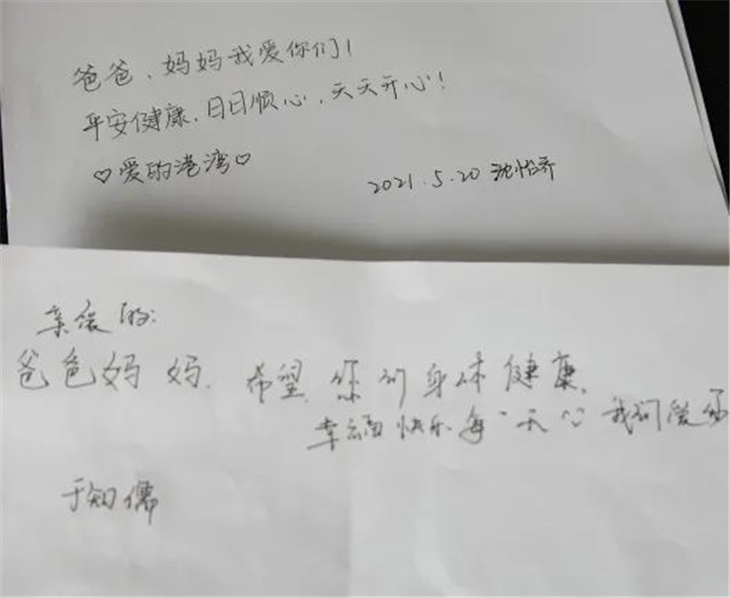 爸爸、妈妈我爱你们!
平安健康,日日顺心,天天开心!
♡爱的港湾♡
2021.5.20 沈怡乔
亲爱的:
爸爸妈妈,希望您们身体健康,
幸福快乐每一天 我们爱
于知儒